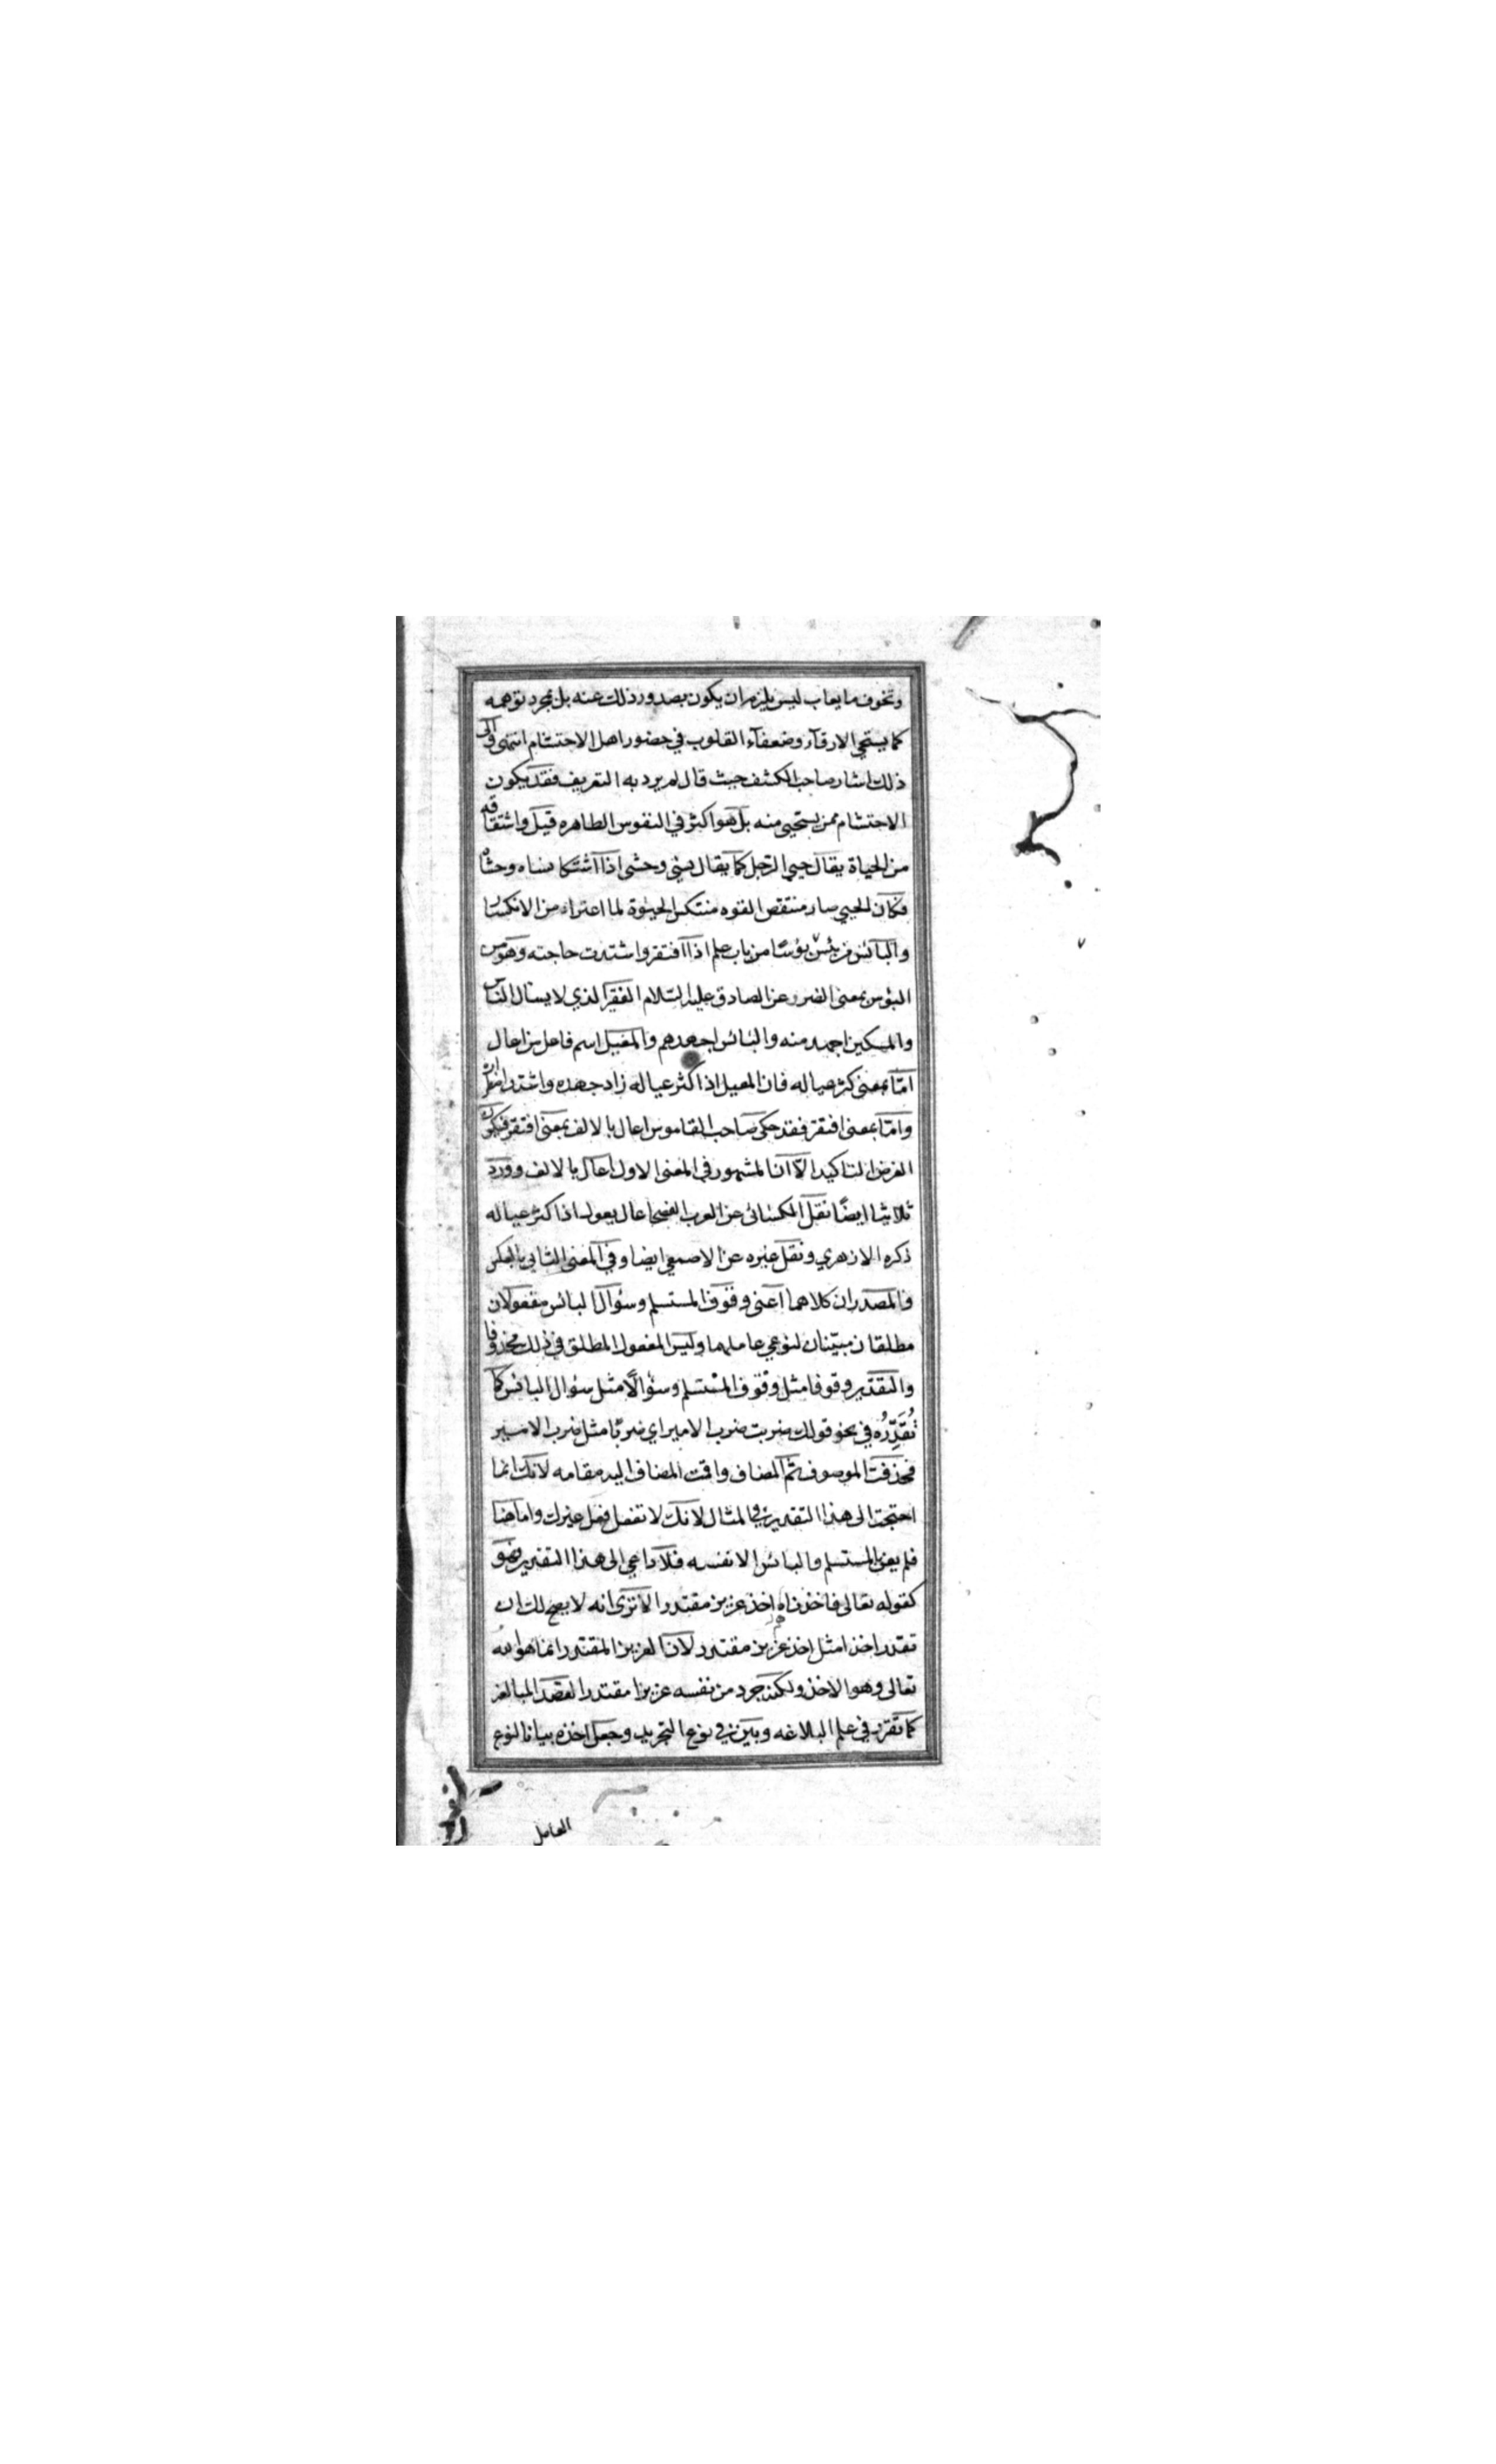 وتخوف ما يعاب ليس يلزم ان يكون بصدور ذلك عنه بل بمجرد توهمه
كما يستحي الارقآء وضعفآء القلوب في حضور اهل الاحتشام انتهى والى
ذلك اشار صاحب الكشف حيث قال لم يرد به التعريف فقد يكون
الاحتشام ممن يستحيى منه بل هو اكثر في النفوس الطاهره قيل واشتقاقه
من الحياة يقال حيي الرجل كما يقال نسي وحشي اذا اشتكا نساه وحشاه
فكان الحيي صار منتقص القوه منتكس الحيوة لما اعتراه من الانكسار
والبآئس من بئس بؤسًا من باب علم اذا افتقر واشتدت حاجته وهو من
البؤس بمعنى الضرر عن الصادق عليه السّلام الفقير الذي لا يسال الناس
والمسكين اجهد منه والبائس اجهدهم والمعيل اسم فاعل من اعال
امّا بمعنى كثر عياله فان المعيل اذا كثر عياله زاد جهده واشتد اضطراره
وامّا بمعنى افتقر فقد حكى صاحب القاموس اعال بالالف بمعنى افتقر فيكون
الغرض التاكيد الّا ان المشهور في المعنى الاول اعال بالالف وورد
ثلاثيا ايضًا نقل الكسائى عن العرب الفصحا عال يعول اذا كثر عياله
ذكره الازهري ونقل غيره عن الاصمعي ايضا وفي المعنى الثاني بالعكس
والمصدران كلاهما اعنى وقوف المستسلم وسؤال البائس مفعولان
مطلقان مبيّنان لنوعي عاملهما وليس المفعول المطلق في ذلك محذوفا
والتقدير وقوفا مثل وقوف المستسلم وسؤالًا مثل سؤال البائس كما
تُقَدِّرُه في نحو قولك ضربت ضرب الامير اي ضربًا مثل ضرب الامير
فحذفت الموصوف ثم المضاف واقمت المضاف اليه مقامه لانك انما
احتجت الى هذا التقدير في المثال لانك لا تفعل فعل غيرك واما هنا
فلم يعن بالمستسلم والبائس الا نفسه فلا داعي الى هذا التقدير وهو
كقوله تعالى فاخذناهم اخذ عزيز مقتدر الا ترى انه لا يصح لك ان
تقدر اخذا مثل اخذ عزيز مقتدر لان العزيز المقتدر انما هو الله
تعالى وهو الاخذ ولكنه جرد من نفسه عزيزا مقتدرا لقصد المبالغه
كما تقرر في علم البلاغه وبين في نوع التجريد وجعل اخذه بيانا لنوع
العامل